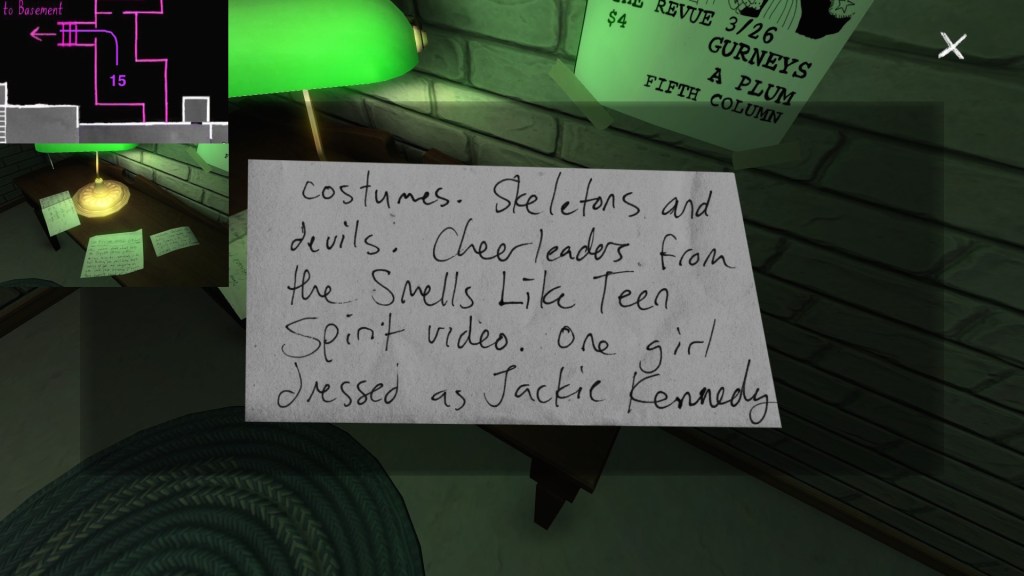 to Basement
15
THE REVUE 3/26
$4
GURNEYS
A PLUM
FIFTH COLUMN
costumes. Skeletons and
devils. Cheerleaders from
the Smells Like Teen
Spirit video. One girl
dressed as Jackie Kennedy